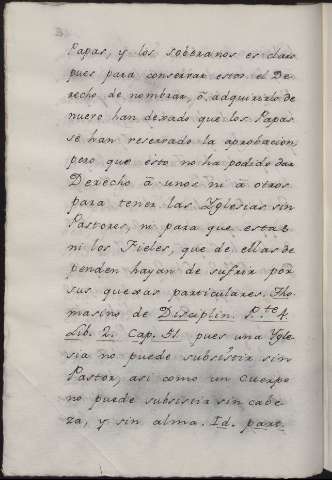 Papas, y los sobéranos es claro
pues para conservar estos el De
recho de nombrar, ō adquirirlo de
nuevo han dexado que los Papas
se han reservado la aprobacion
pero que esto no ha podido dar
Derecho ā unos ni ā otros
para tener las Yglesias sin
Pastores, ni para que estas
ni los Fieles, que de ellas de
penden hayan de sufrir pōr
sus quexas particulares. Tho
masino de Disciplin. P.te 4.
Lib. 2. Cap. 51 pues una Ygle
sia no puede subsistir sin
Pastor, asi como un cuerpo
no puede subsistir sin cabe
za, y sin alma. Id. part.